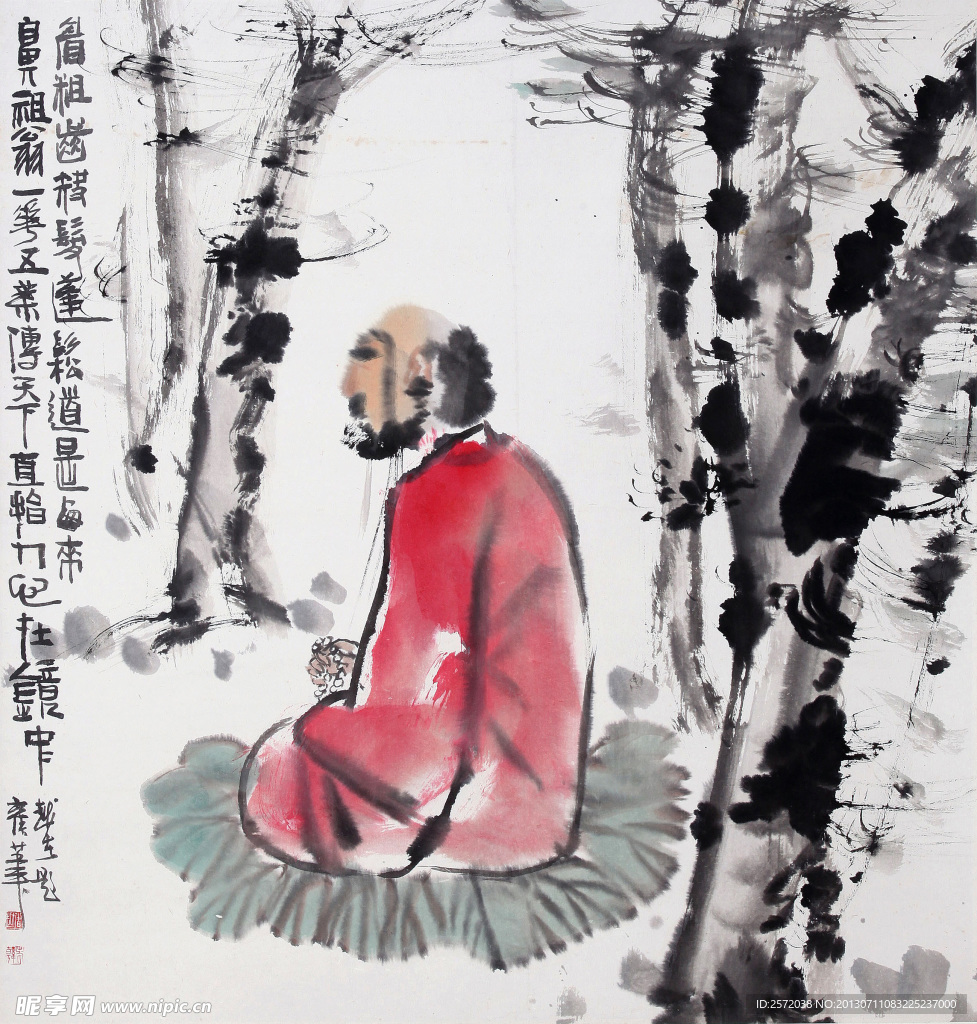 眉粗齒髮蓬鬆道是西來
鼻祖翁一華五葉傳天下直指人心在鏡中
昵享网 www.nipic.cn
ID:2572038 NO:20130711083225237000